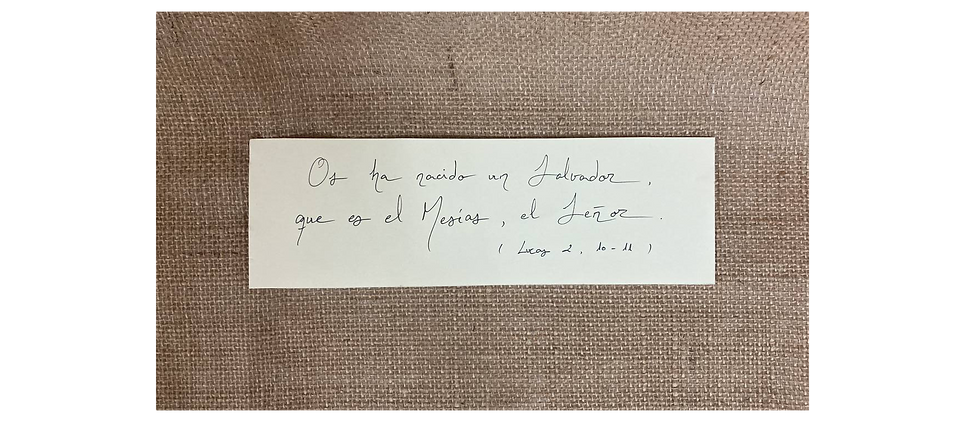 Os ha nacido un Salvador,
que es el Mesías, el Señor.
(Lucas 2, 10-11)